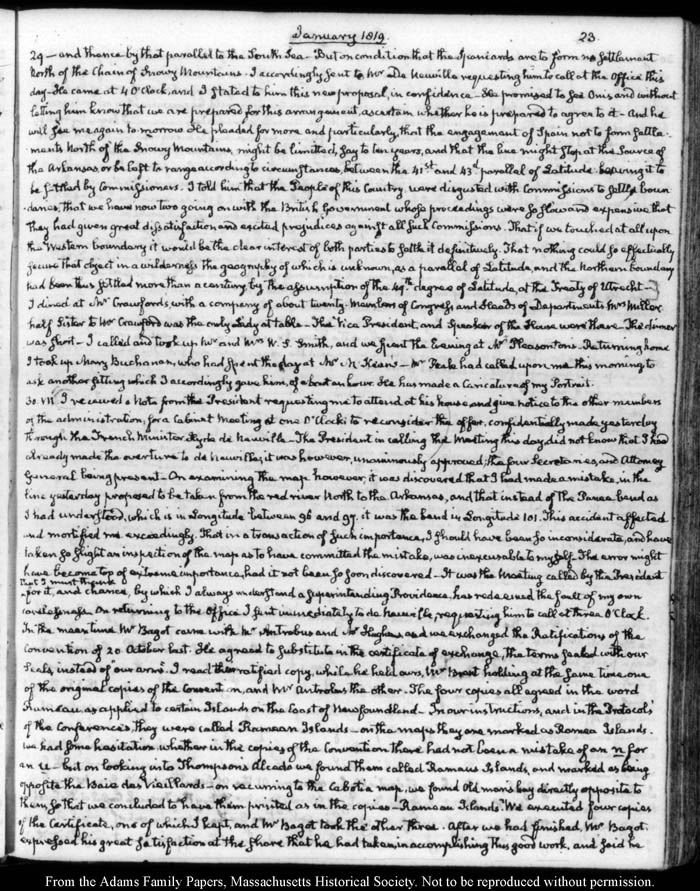 January 1819.
23.
29 — and thence by that parallel to the South Sea. But on condition that the Spaniards are to form no settlement
North of the Chain of Snowy Mountains. I accordingly sent to Mr De Neuville requesting him to call at the Office this
day. He came at 4 O'Clock, and I stated to him this new proposal, in confidence. He promised to see Onis and without
letting him know that we are prepared for this arrangement, ascertain whether he is prepared to agree to it — and he
will see me again to-morrow. He pleaded for more and particularly, that the engagement of Spain not to form settle-
ments North of the Snowy Mountains, might be limited, say to ten years, and that the line might stop at the Source of
the Arkansas, or be left to range according to circumstances, between the 41st and 43d parallel of Latitude leaving it to
be settled by Commissioners. I told him that the People of this Country were disgusted with Commissions to settle boun
daries, that we have now two going on with the British Government whose proceedings were so slow and expensive, that
they had given great dissatisfaction and excited prejudices against all such Commissions. That if we touched at all upon
the Western boundary it would be the clear interest of both parties to settle it definitively. That nothing could so effectually
secure that object in a wilderness the geography of which is unknown, as a parallel of Latitude, and the Northern boundary
had been thus settled more than a century by the assumption of the 49th degree of Latitude, at the Treaty of Utrecht —
I dined at Mr Crawford's with a company of about twenty Members of Congress and Heads of Departments Mrs Miller
half Sister to Mr Crawford was the only Lady at table — The Vice President, and Speaker of the House were there. The dinner
was short — I called and took up Mr and Mrs W. S. Smith, and we spent the Evening at Mr Pleasonton's. Returning home
I took up Mary Buchanan, who had spent the day at Mr McKean's — Mr Peale had called upon me this morning to
ask another sitting which I accordingly gave him, of about an hour. He has made a Caricature of my Portrait.
30. VII. I received a Note from the President requesting me to attend at his house and give notice to the other members
of the administration, for a Cabinet Meeting at one O'Clock: to reconsider the offer, confidentially made yesterday
through the French Minister Hyde de Neuville — The President in calling the Meeting this day, did not know that I had
already made the overture to de Neuville; it was however, unanimously approved; the four Secretaries, and Attorney
General being present — On examining the map however, it was discovered that I had made a mistake, in the
line yesterday proposed to be taken from the red river North to the Arkansas, and that instead of The Pawnee bend as
I had understood, which is in Longitude between 96 and 97. it was the bend in Longitude 101. This accident affected
and mortified me exceedingly. That in a transaction of such importance, I should have been so inconsiderate, and have
taken so slight an inspection of the map as to have committed the mistake, was inexcusable to myself. The error might
have become top of extreme importance, had it not been so soon discovered — It was the Meeting called by the President
that I must thank
for it, and chance, by which I always understand a superintending Providence, has redeemed the fault of my own
carelessness. On returning to the Office I sent immediately to de Neuville, requesting him to call at three O'Clock.
In the mean time Mr Bagot came with Mr Antrobus and Mr Hughes, and we exchanged the Ratifications of the
Convention of 20 October last. He agreed to substitute in the certificate of exchange, the terms sealed with our
Seals, instead of our arms. I read their ratified copy, while he held ours, Mr Brent holding at the same time one
of the original copies of the Convention, and Mr Antrobus the other. The four copies all agreed in the word
Rameau as applied to certain Islands on the Coast of Newfoundland. In our instructions, and in the Protocols
of the Conferences they were called Ramean Islands — on the maps they are marked as Ramea Islands.
we had some hesitation whether in the copies of the Convention there had not been a mistake of an n for
an u — but on looking into Thompson's Alcedo we found them called Rameaus Islands, and marked as being
opposite the Baie des Vieillards — on recurring to the Cabotia map, we found Old man's bay directly opposite to
them, so that we concluded to have them printed as in the copies — Rameau Islands. We executed four copies
of the Certificate, one of which I kept, and Mr Bagot took the other three. After we had finished, Mr Bagot
expressed his great satisfaction at the share that he had taken, in accomplishing this good work, and said he
From the Adams Family Papers, Massachusetts Historical Society. Not to be reproduced without permission.